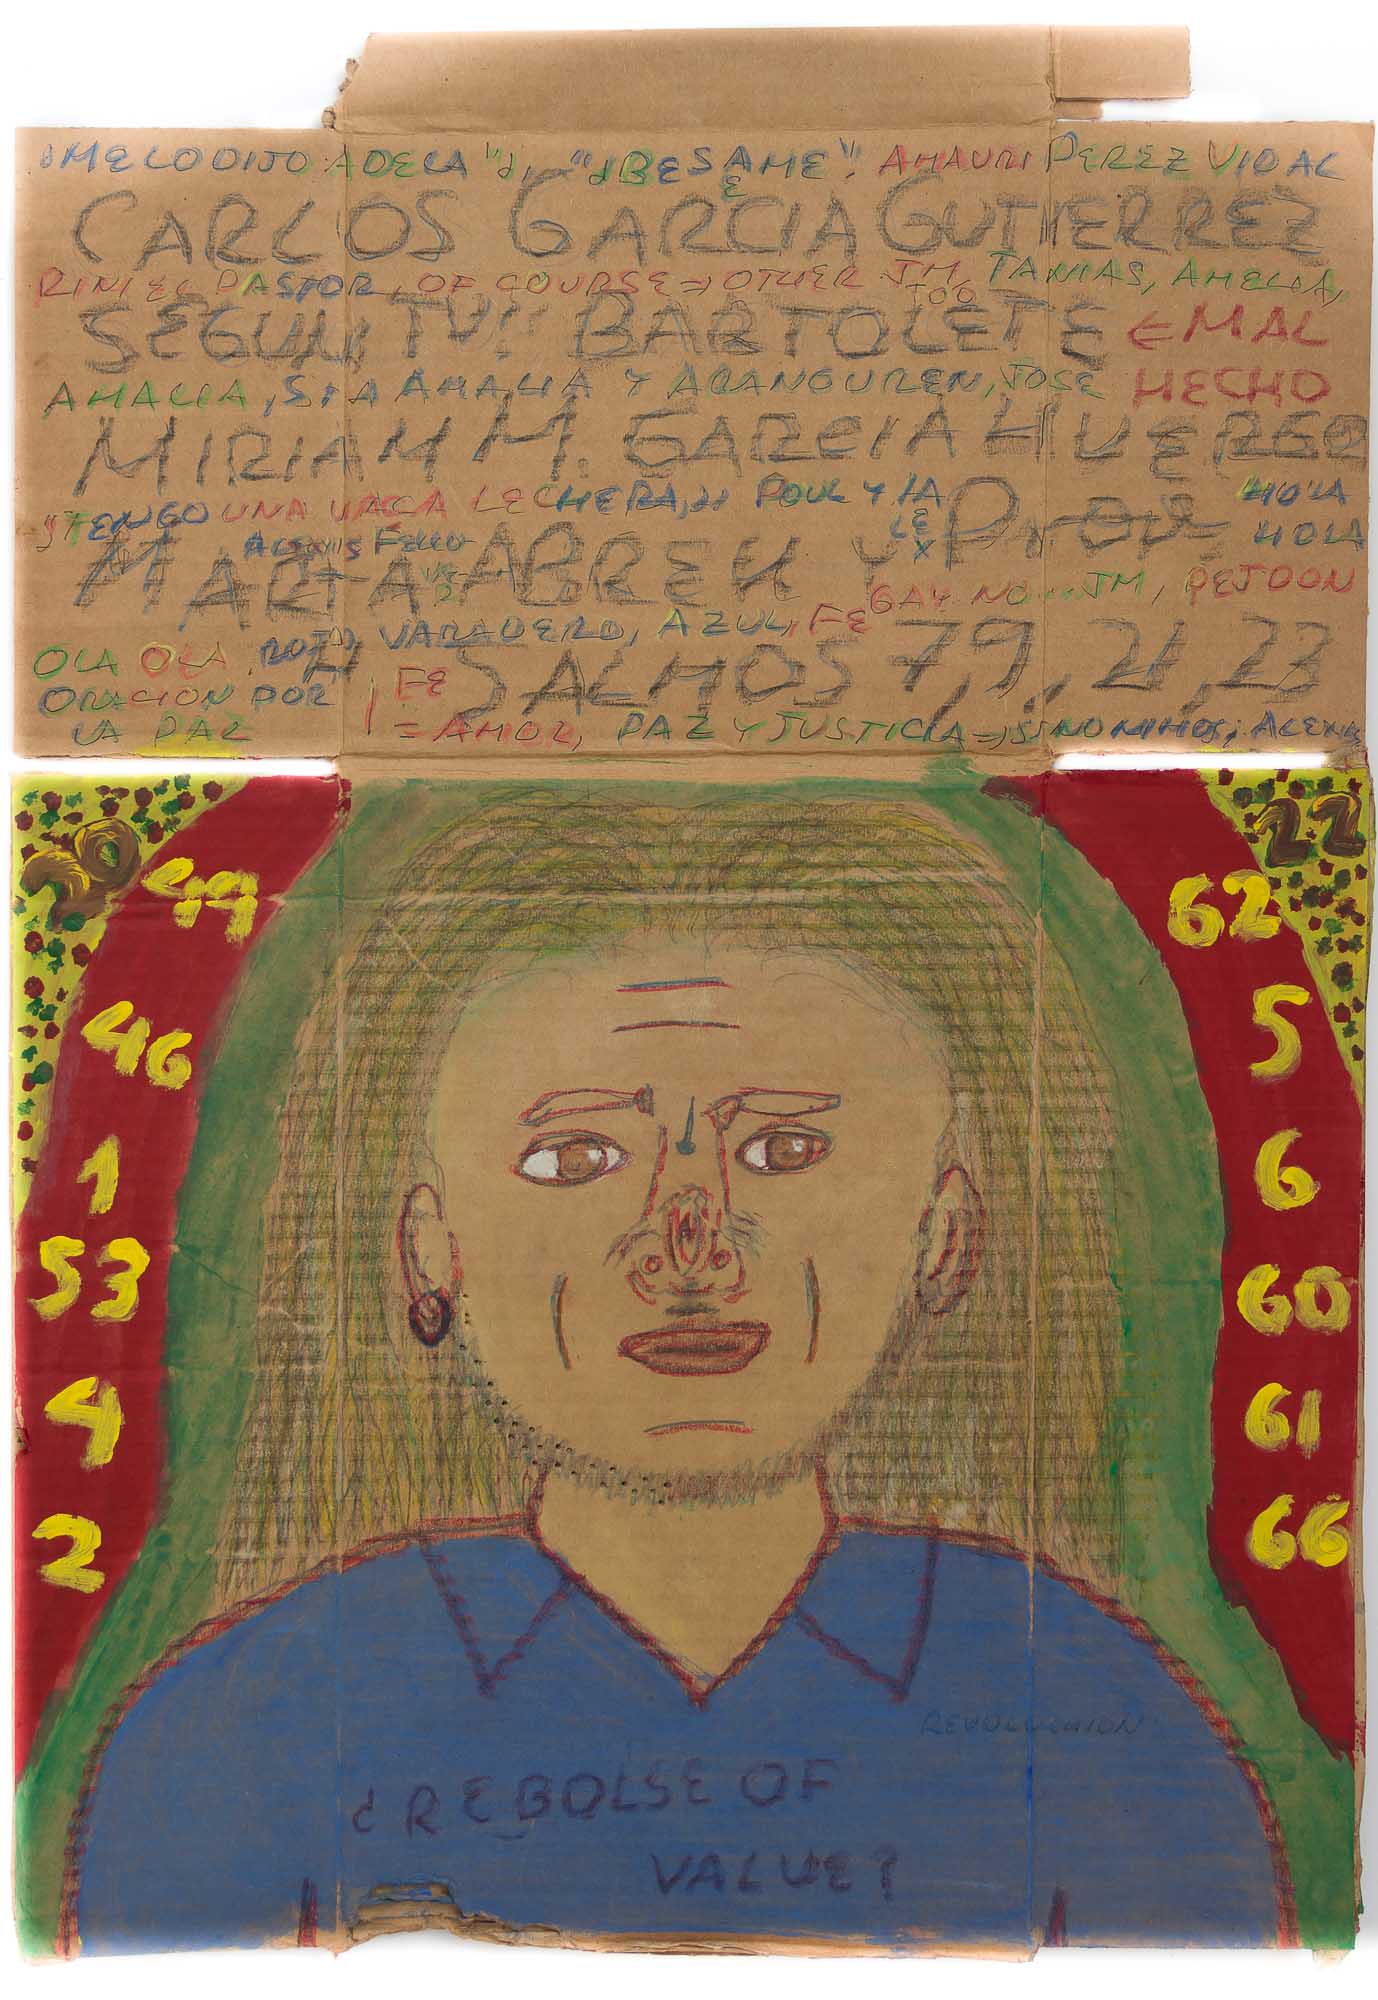 ¿MELODIJO ADELA"?, "¿BESAME"! AMAURI PEREZ VIDAL
E
CARLOS GARCIA GUTIERREZ
PASTOR, OF COURSE => OTHER JM, TANIAS, AMELIA,
TOO
SEGUN TV!! BARTOLETE ← MAL
AMALIA, SIA AMALIA Y ARANGUREN, JOSE HECHO
MIRIAM M. GARCIA HUERGO
"TENGO UNA VACA LECHERA," POUL Y LA HOLA
LEX
ALEXIS FELLO HOLA
MARTA ABREU Y PROV
GAY NO... JM, PEJOON
VARADERO, AZUL, FE
OLA OLA
SALMOS 7, 9, 21, 23
ORACION POR FE
LA PAZ = AMOR, PAZ Y JUSTICIA => SINONIMOS;
20 22
49 62
46 5
1 6
53 60
4 61
2 66
REVOLUCION
¿REBOLSE OF
VALUE?